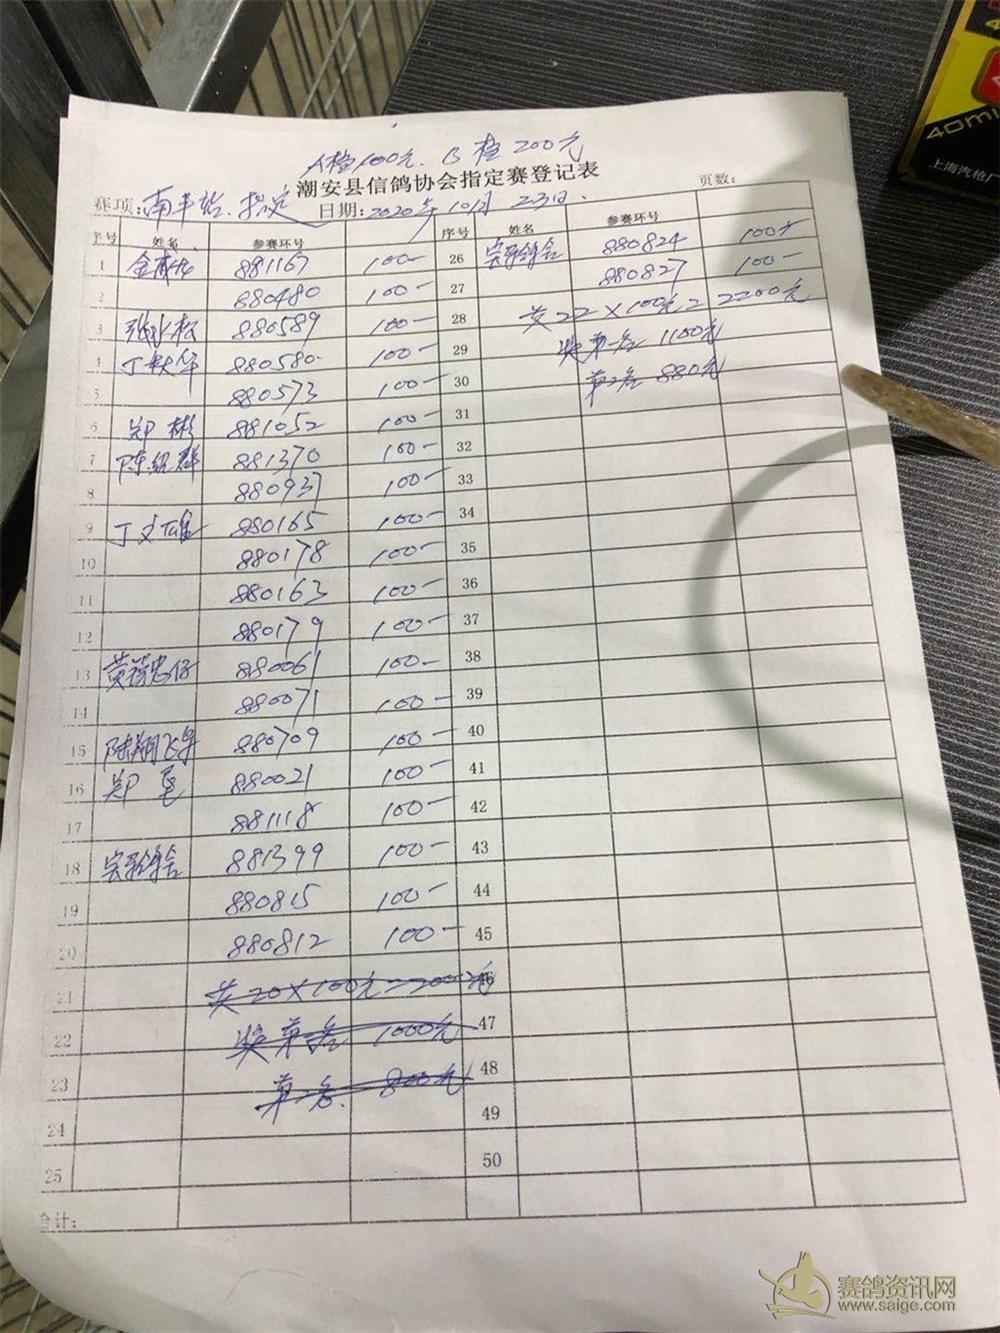 A档100元. B 档 200元
潮安县信鸽协会指定赛登记表
赛项: 南丰站.指定 日期: 2020年10月23日. 页数:
序号 姓名 参赛环号 序号 姓名 参赛环号
1 881167 100- 26 实验鸽舍 880824 100元
2 880480 100- 27 880827 100-
3 张永松 880589 100- 28 共22×100元=2200元
4 丁秋华 880580 100- 29 奖第一名 1100元
5 880573 100- 30 第2名 880元
6 郑彬 881052 100- 31
7 陈绍群 881370 100- 32
8 880937 100- 33
9 丁文雄 880165 100- 34
10 880178 100- 35
11 880163 100- 36
12 880179 100- 37
13 880061 100- 38
14 880071 100- 39
15 陆翔飞 880709 100- 40
16 郑 880021 100- 41
17 881118 100- 42
18 实验鸽舍 881399 100- 43
19 880815 100- 44
20 880812 100- 45
21 共20×100元=2000元 46
22 奖第一名 1000元 47
23 第2名. 800元 48
24 49
25 50
合计:
40ml
上海汽枪厂
赛鸽资讯网
www.saige.com